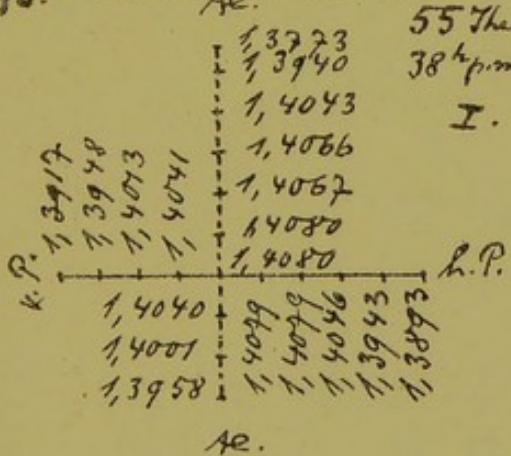 Ae.
55 The
1,3773
1,3940
38 h p.m
1,4043
I.
1,4066
1,4067
1,4080
1,4080
1,3917
1,3948
1,4013
1,4041
k. P.
h. P.
1,4040
1,4001
1,3958
1,4079
1,4079
1,4046
1,3943
1,3893
Ae.